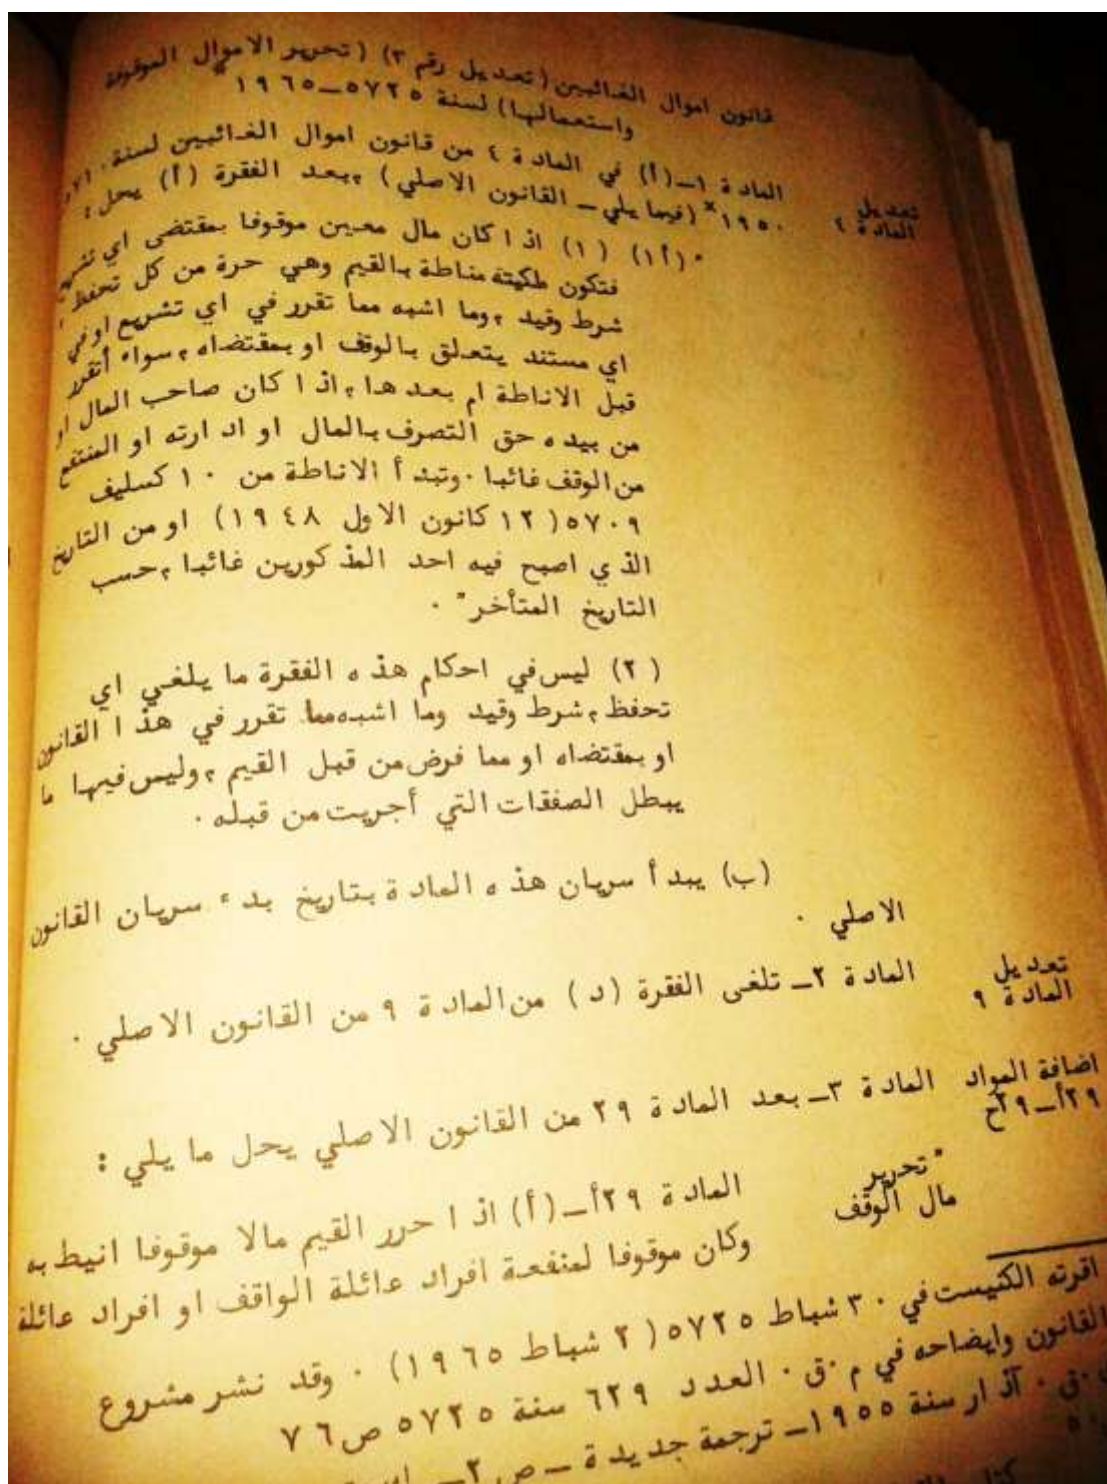 قانون اموال الغائبين (تعديل رقم ٣) (تحرير الاموال الموقوفة
واستعمالها) لسنة ٥٧٢٥ــ١٩٦٥*
تعديل
المادة ٤
المادة ١ــ(أ) في المادة ٤ من قانون اموال الغائبين لسنة
١٩٥٠* (فيما يلي ــ القانون الاصلي) ، بعد الفقرة (أ) يحل :
"(أ١) (١) اذا كان مال معين موقوفا بمقتضى اي تشريع
فتكون ملكيته مناطة بالقيم وهي حرة من كل تحفظ ،
شرط وقيد ، وما اشبه مما تقرر في اي تشريع او في
اي مستند يتعلق بالوقف او بمقتضاه ، سواء أتقرر
قبل الاناطة ام بعدها ، اذا كان صاحب المال او
من بيده حق التصرف بالمال او ادارته او المنتفع
من الوقف غائبا . وتبدأ الاناطة من ١٠ كسليف
٥٧٠٩ (١٢ كانون الاول ١٩٤٨) او من التاريخ
الذي اصبح فيه احد المذكورين غائبا ، حسب
التاريخ المتأخر" .
(٢) ليس في احكام هذه الفقرة ما يلغي اي
تحفظ ، شرط وقيد وما اشبه مما تقرر في هذا القانون
او بمقتضاه او مما فرض من قبل القيم ، وليس فيها ما
يبطل الصفقات التي أجريت من قبله .
(ب) يبدأ سريان هذه المادة بتاريخ بدء سريان القانون
الاصلي .
تعديل
المادة ٩
المادة ٢ــ تلغى الفقرة (د) من المادة ٩ من القانون الاصلي .
اضافة المواد
٢٩أــ٢٩ح
المادة ٣ــ بعد المادة ٢٩ من القانون الاصلي يحل ما يلي :
"تحرير
مال الوقف
المادة ٢٩أــ(أ) اذا حرر القيم مالا موقوفا انيط به
وكان موقوفا لمنفعة افراد عائلة الواقف او افراد عائلة
اقرته الكنيست في ٣٠ شباط ٥٧٢٥ (٢ شباط ١٩٦٥) . وقد نشر مشروع
القانون وايضاحه في م.ق. العدد ٦٢٩ سنة ٥٧٢٥ ص ٧٦
ق. آذار سنة ١٩٥٥ــ ترجمة جديدة ــ ص ٢ــ